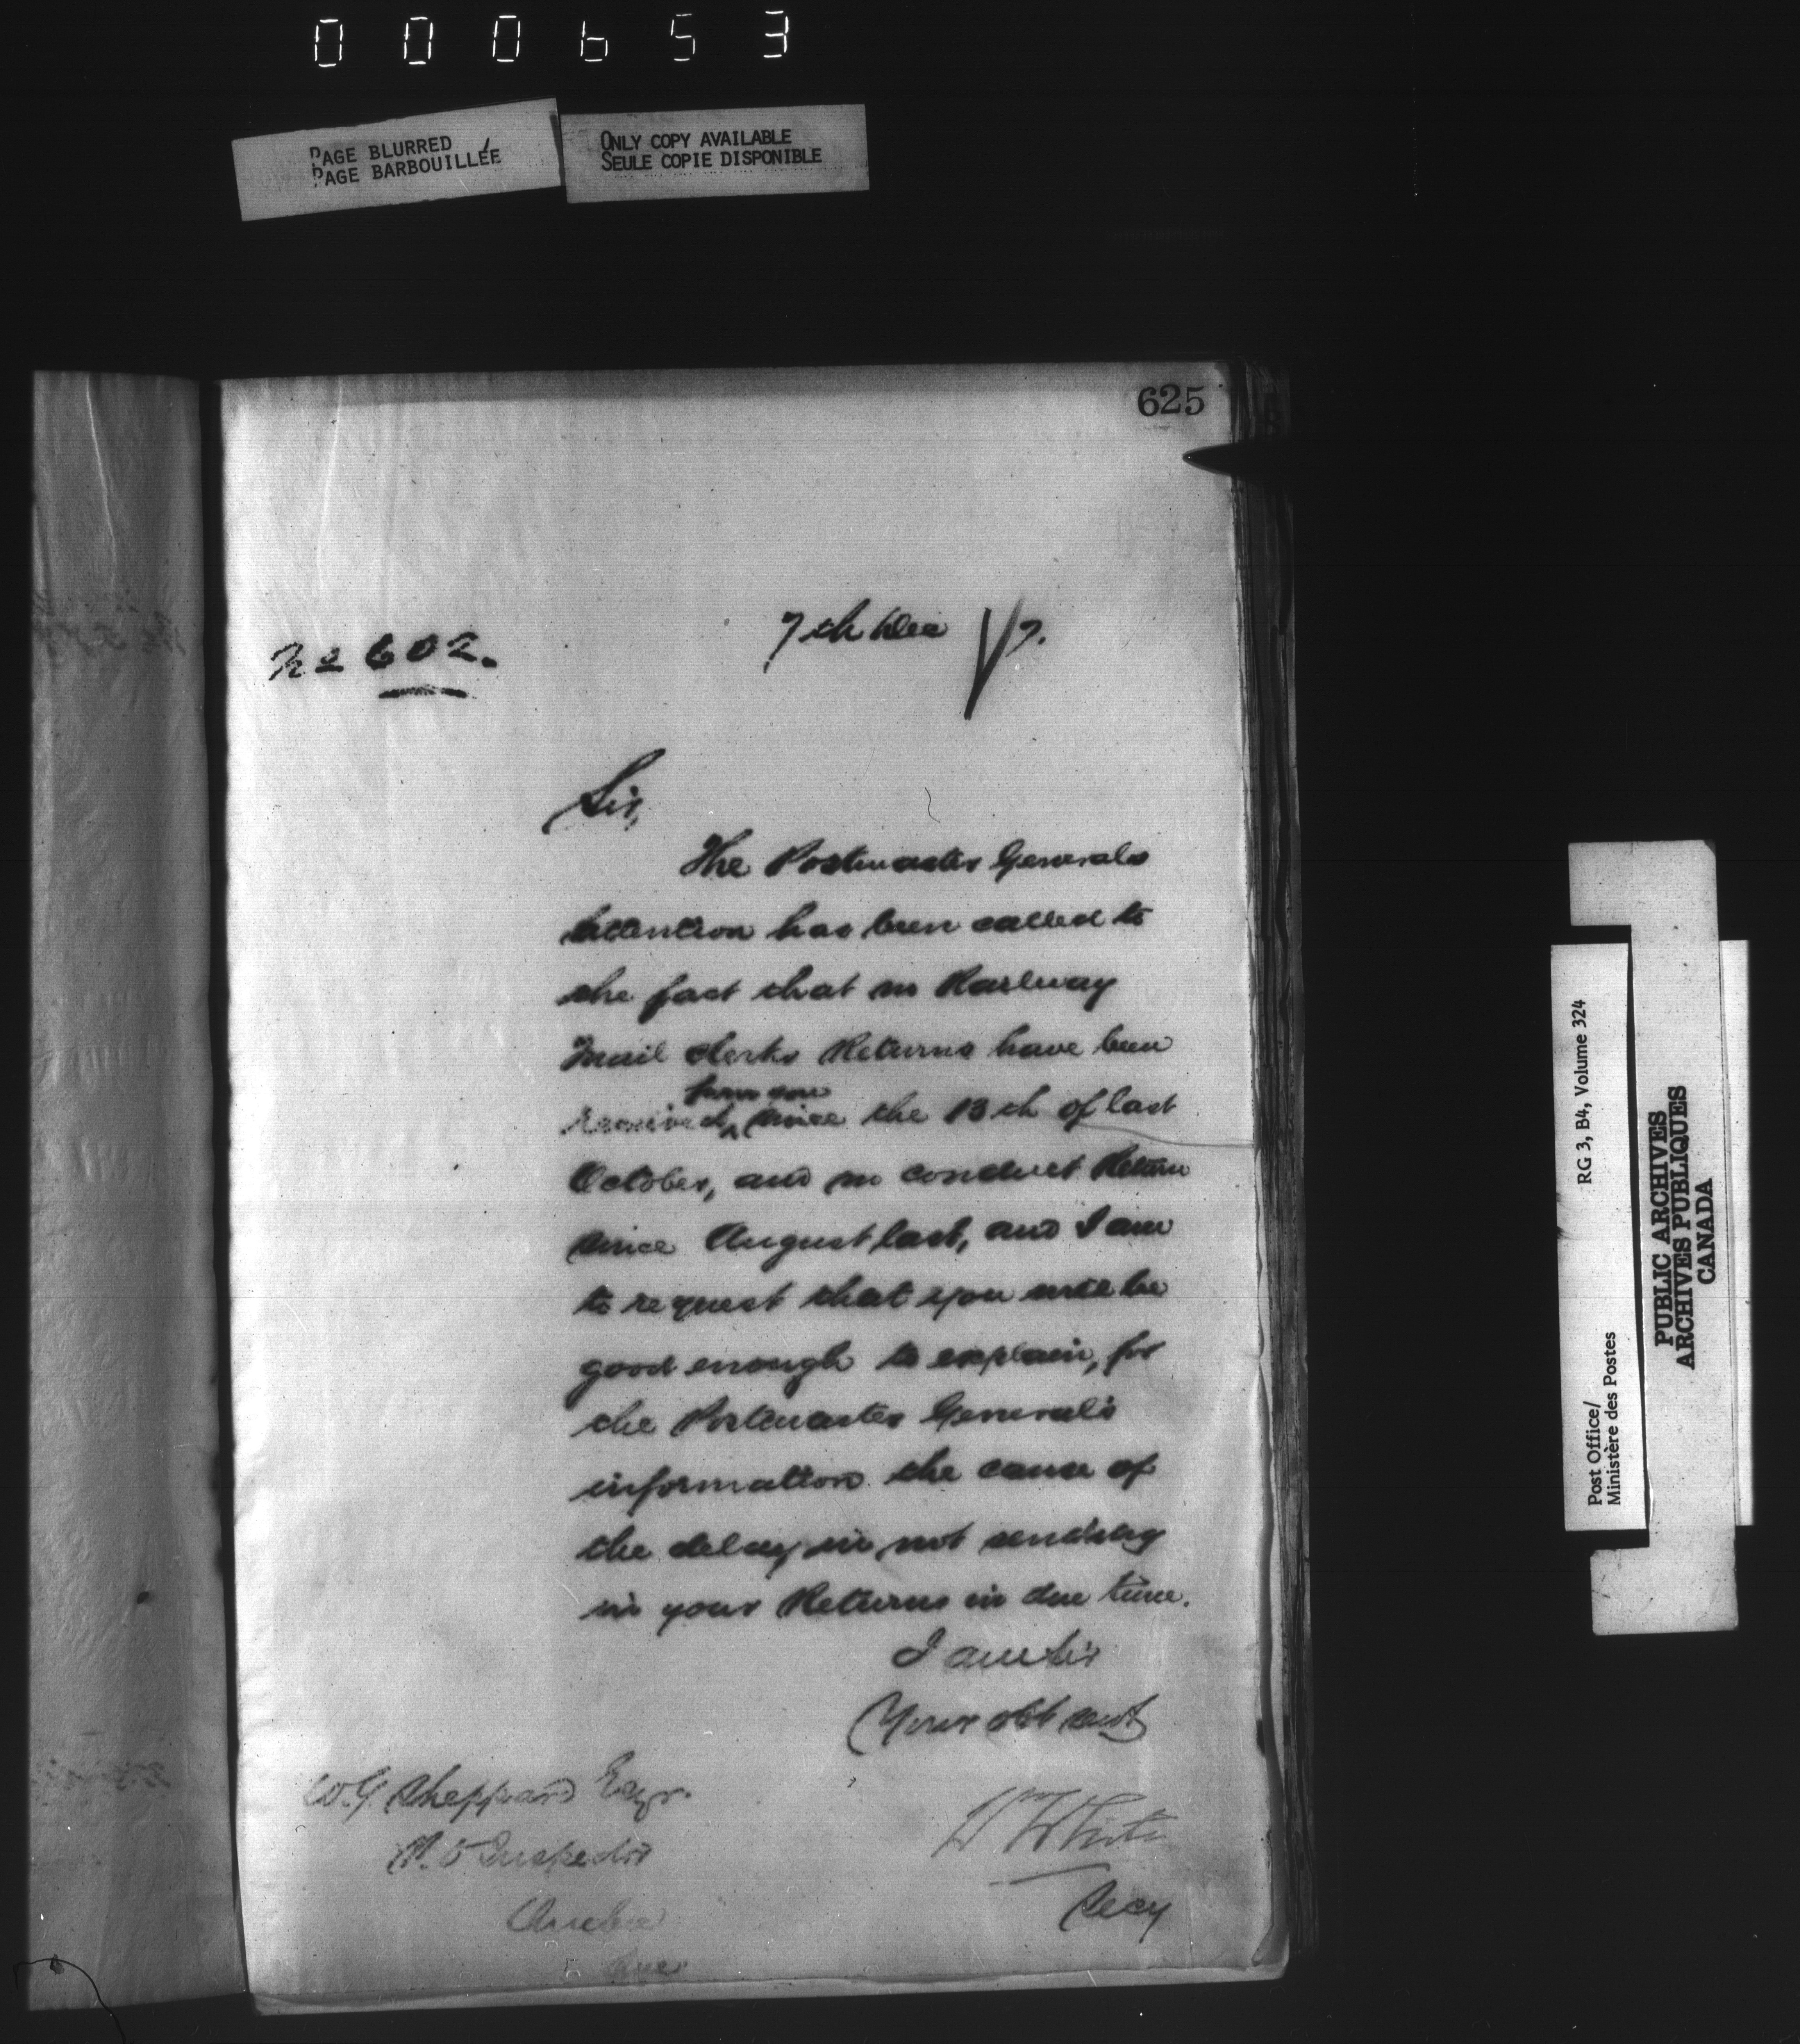 000653
PAGE BLURRED
PAGE BARBOUILLÉE
ONLY COPY AVAILABLE
SEULE COPIE DISPONIBLE
625
7th Dec
No 602.
Sir,
The Postmaster Generals
attention has been called to
the fact that no Railway
Mail Clerks Returns have been
from you
received ^ since the 13th of last
October, and no conduct Return
since August last, and I am
to request that you will be
good enough to explain, for
the Postmaster General's
information the cause of
the delay in not sending
in your Returns in due time.
I am Sir
Your obt servt
W.G. Sheppard Esqr.
P.O Inspector
Quebec
Que
W White
Secy
Post Office/
Ministère des Postes
RG 3, B4, Volume 324
PUBLIC ARCHIVES
ARCHIVES PUBLIQUES
CANADA